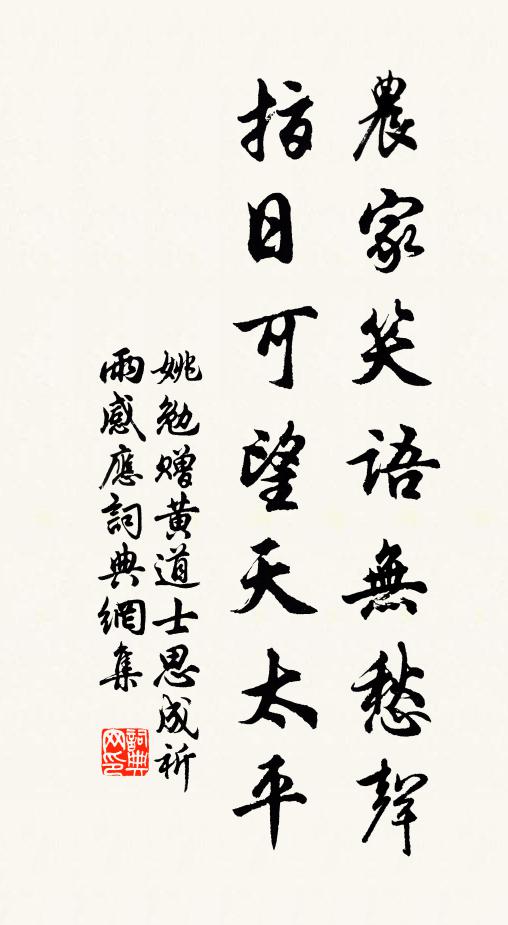 農家笑語無愁聲
指日可望天太平
姚勉贈黄道士思成祈
雨感應詞典網集
詞典
网印